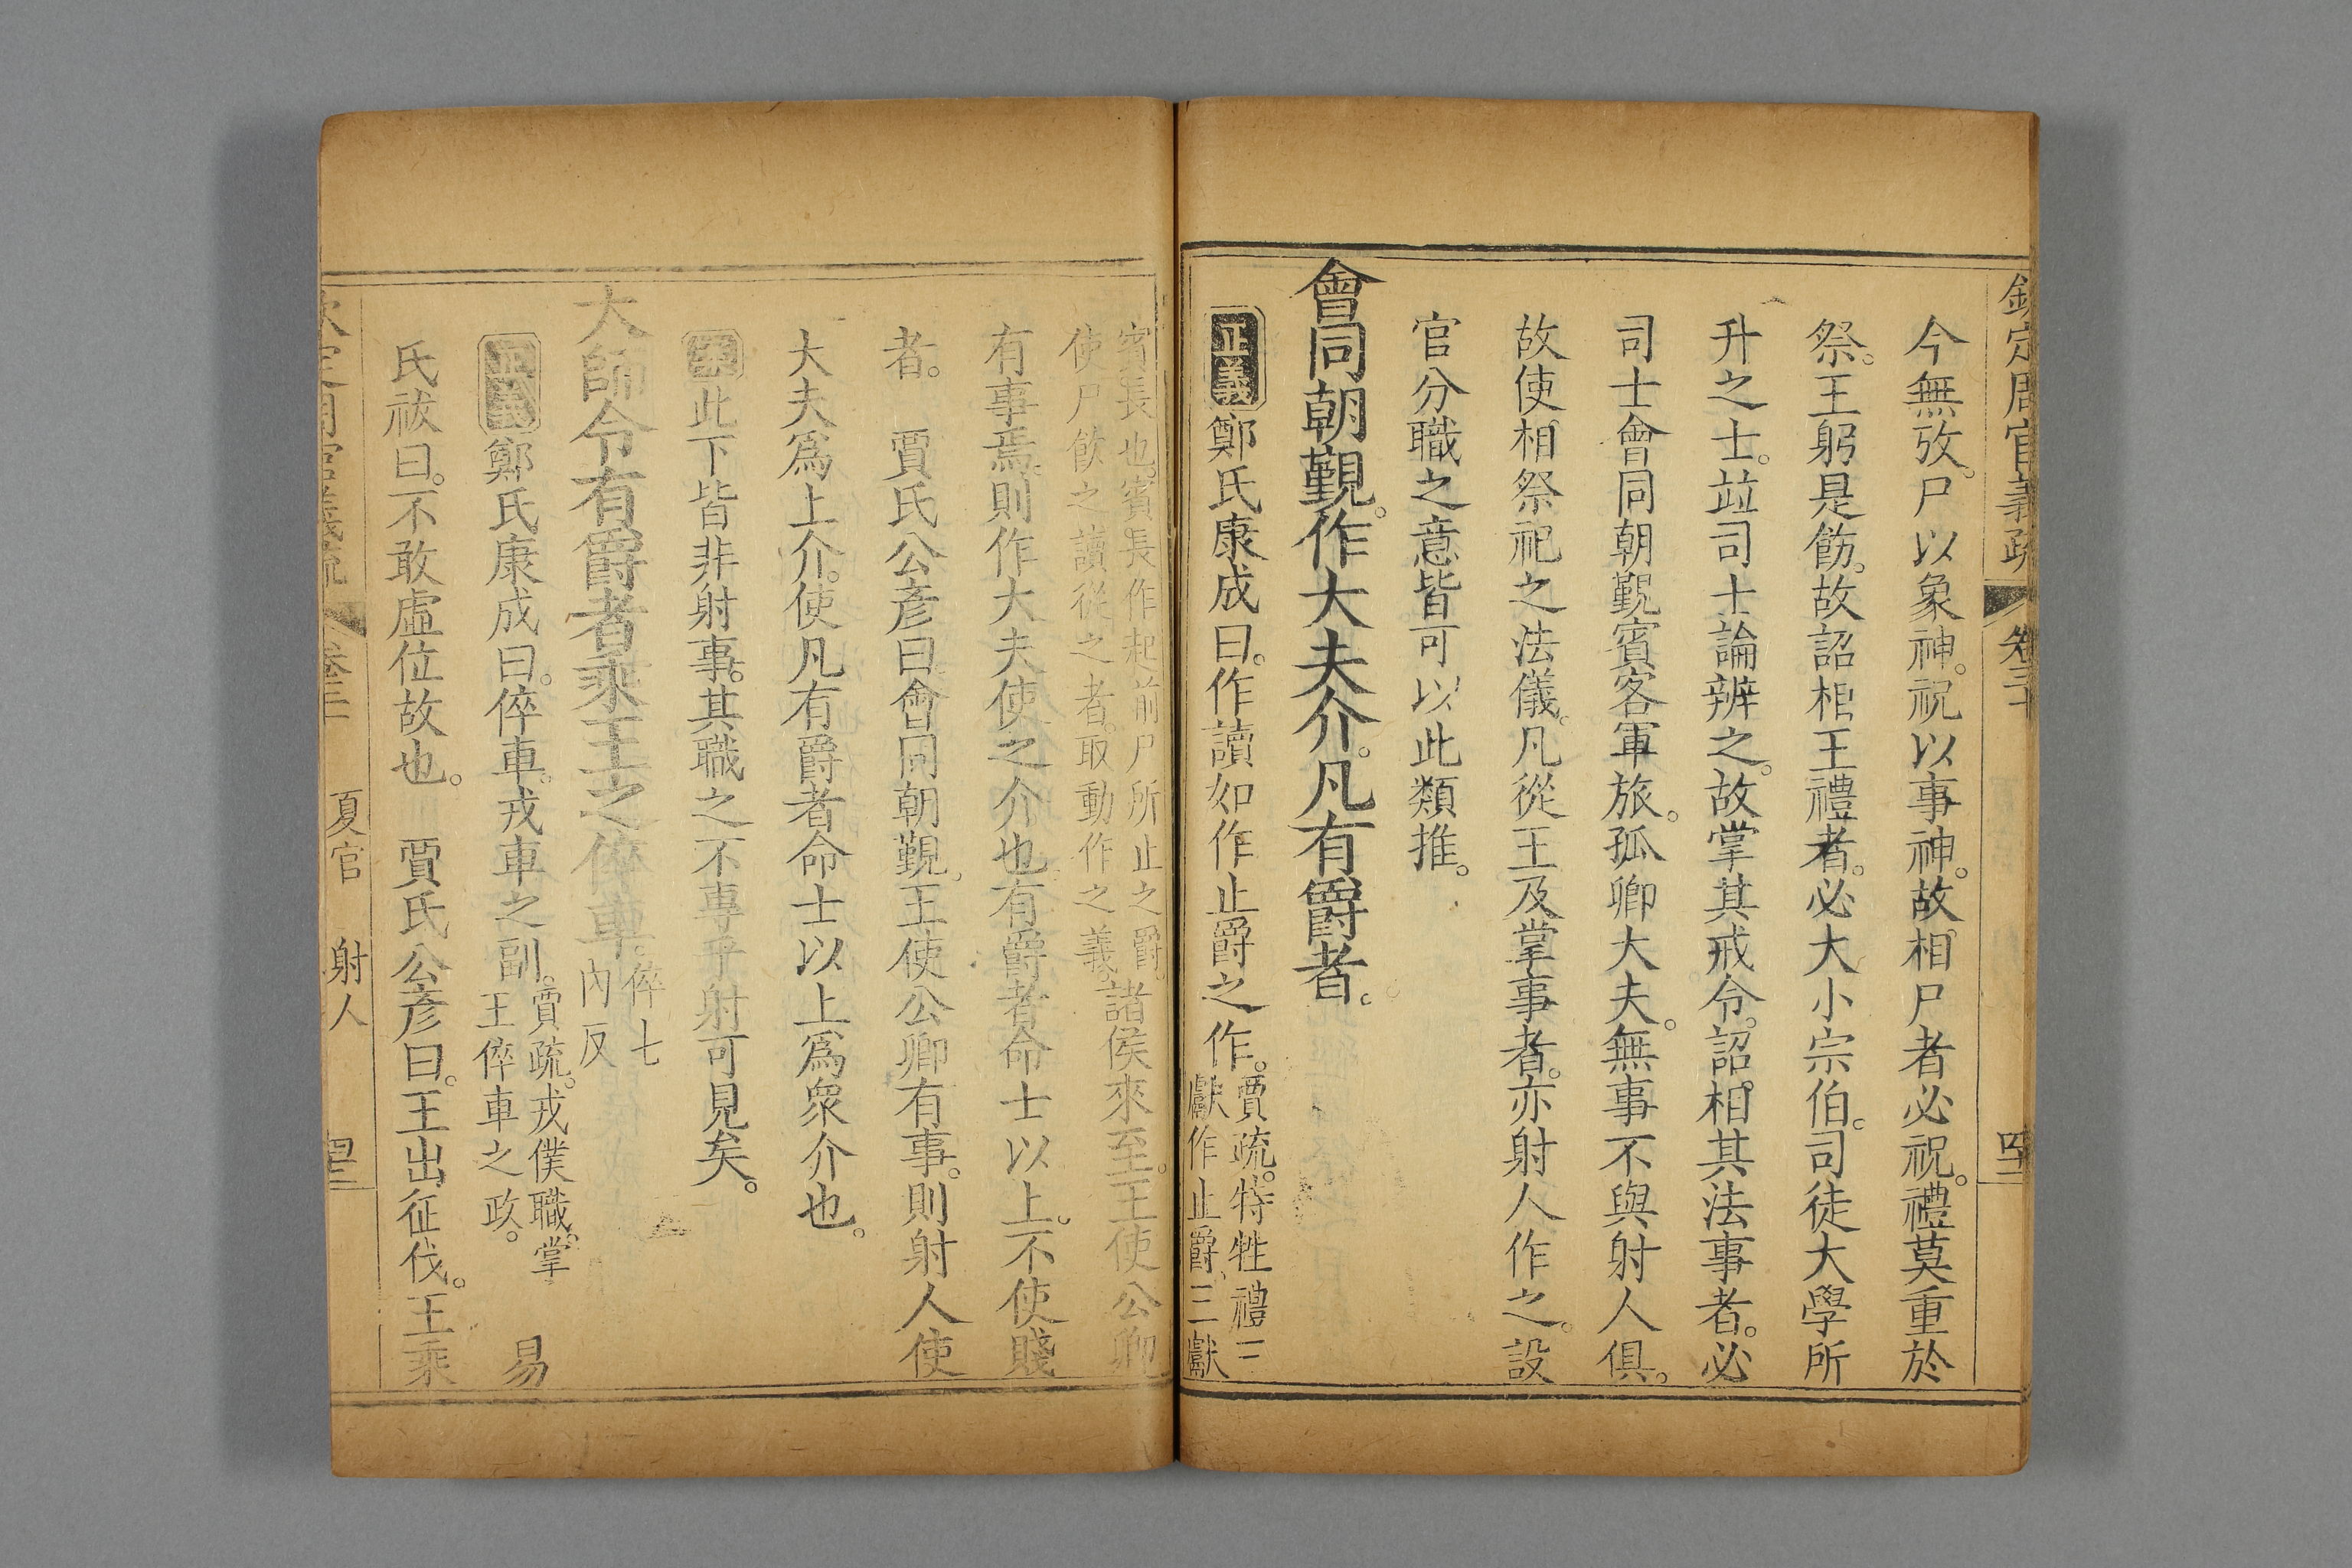 欽定周官義疏 卷三十
今無攷。尸以象神。祝以事神。故相尸者必祝。禮莫重於
祭。王躬是飭。故詔相王禮者。必大小宗伯。司徒大學所
升之士。竝司士論辨之。故掌其戒令。詔相其法事者。必
司士會同朝覲賓客軍旅。孤卿大夫。無事不與射人俱。
故使相祭祀之法儀。凡從王及掌事者。亦射人作之。設
官分職之意皆可以此類推。
會同朝覲。作大夫介。凡有爵者。
正義 鄭氏康成曰。作讀如作止爵之作。
賈疏。特牲禮三
獻作止爵、三獻
賓長也。賓長作起前尸所止之爵。
使尸飲之讀從之者。取動作之義。
諸侯來至。王使公卿
有事焉、則作大夫使之介也。有爵者命士以上。不使賤
者。 賈氏公彥曰。會同朝覲。王使公卿有事。則射人使
大夫爲上介。使凡有爵者命士以上爲衆介也。
案 此下皆非射事。其職之不專乎射可見矣。
大師令有爵者乘王之倅車。
倅七
內反
正義 鄭氏康成曰。倅車。戎車之副。
賈疏。戎僕職。掌
王倅車之政。
易
氏祓曰。不敢虛位故也。 賈氏公彥曰。王出征伐。王乘
欽定周官義疏 卷三十 夏官 射人